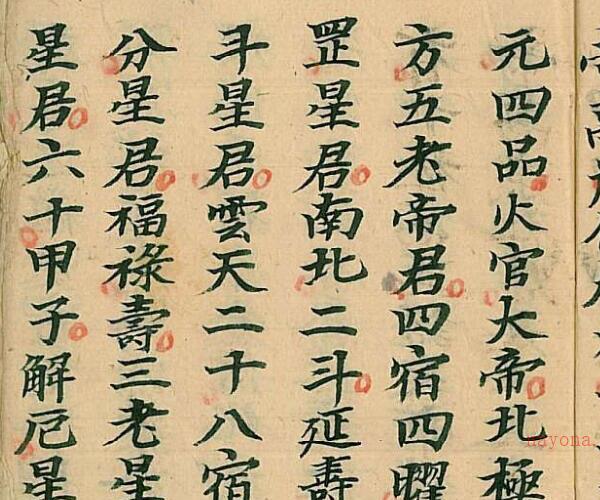 元四品火官大帝北極
方五老帝君四宿四曜
罡星君南北二斗延壽
斗星君雲天二十八宿
分星君福祿壽三老星
星君六十甲子解厄星
nayona.